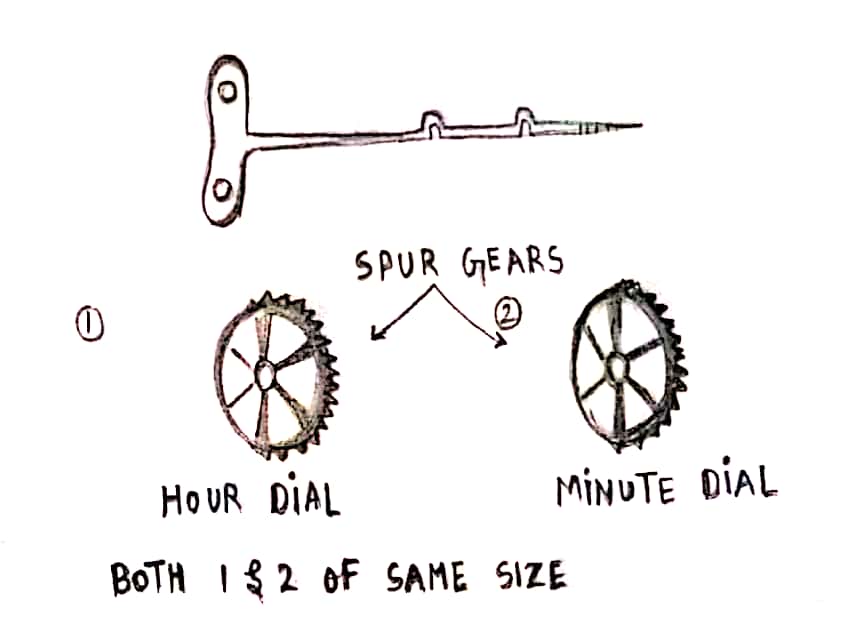 SPUR GEARS
① ②
HOUR DiAL
MiNUTE DiAL
BOTH 1 & 2 OF SAME SIZE